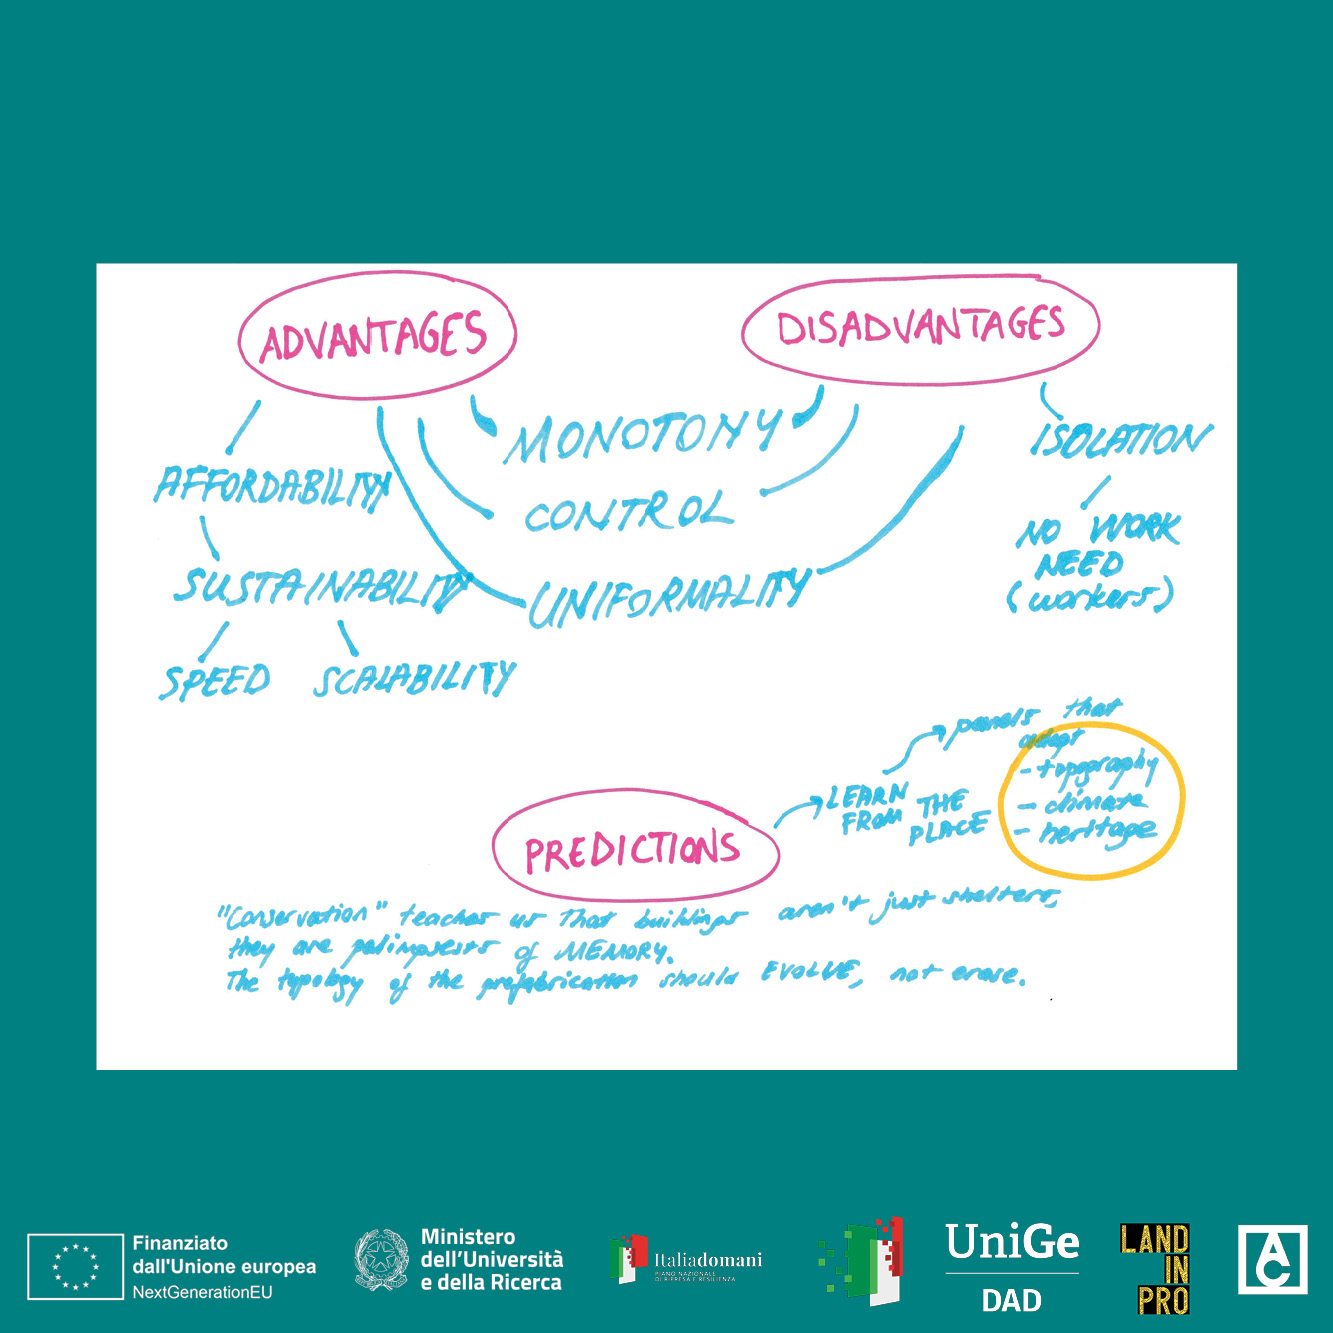 ADVANTAGES
DISADVANTAGES
MONOTONY
ISOLATION
AFFORDABILITY
CONTROL
NO WORK
NEED
(workers)
SUSTAINABILITY
UNIFORMALITY
SPEED
SCALABILITY
panels that
adapt
- topography
- climate
- heritage
LEARN
FROM THE
PLACE
PREDICTIONS
"Conservation" teaches us that buildings aren't just shelters,
they are palimpsests of MEMORY.
The topology of the prefabrication should EVOLVE, not erase.
Finanziato
dall'Unione europea
NextGenerationEU
Ministero
dell'Università
e della Ricerca
Italiadomani
PIANO NAZIONALE
DI RIPRESA E RESILIENZA
UniGe
DAD
LAND
IN
PRO
AC